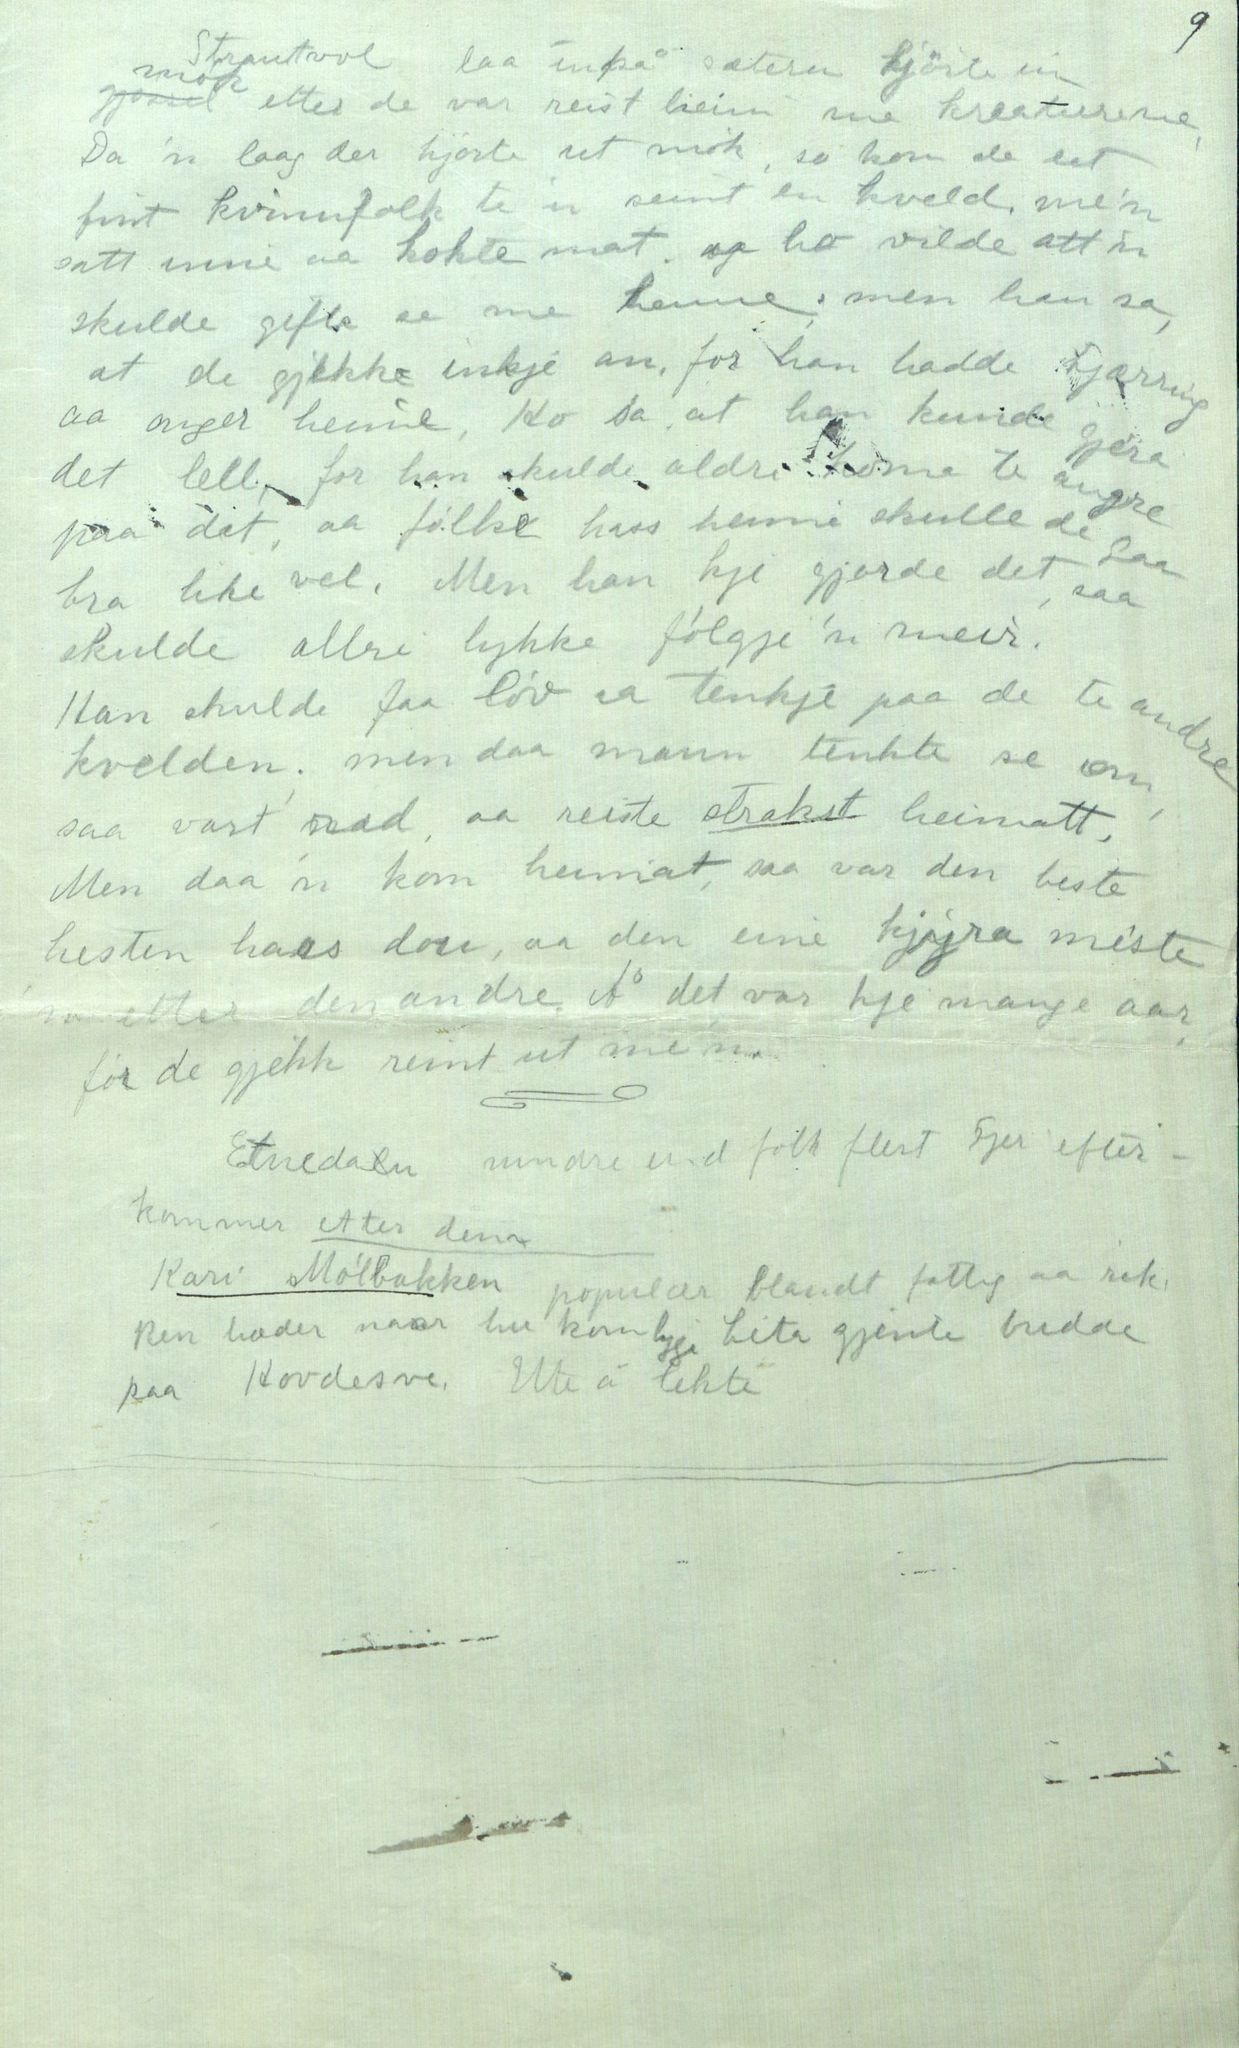 9
Strautvol laa innpå sæteren kjørte inn
møk
gjødsel etter de var reist heim me kreaturene,
Da 'n laag der kjörte ut mök, so kom de eet
fint kvinnfolk te 'n seint en kveld, me'n
satt inne aa kokte mat. og ho vilde att 'n
skulde gifte se me henne; men han sa,
at de gjekke inkje an, for han hadde kjærring
aa onger heime, Ho sa, at han kunde gjera
det lell, for han skulde aldri koma te angre
paa det, aa folke hass heime skulle de gaa
bra like vel. Men han kje gjorde det, saa
skulde allri lykke følgje 'n meir.
Han skulde faa löv aa tenkje paa de te andre
kvelden; men daa mann tenkte se om,
saa vart 'n rad, aa reiste strakst heimatt,
Men daa 'n kom heimat, saa var den beste
hesten hass dou, aa den eine kjyra miste
'n etter den andre. Å det var kje mange aar,
för de gjekk reint ut me 'n.
Etnedalen mindre end folk flest Ejer efter-
kommer etter dem
Kari Mölbakken populær blandt fattig aa rik.
Ren hæder naar hu kom kje lita gjente budde
paa Hovdesve. Utte å lekte